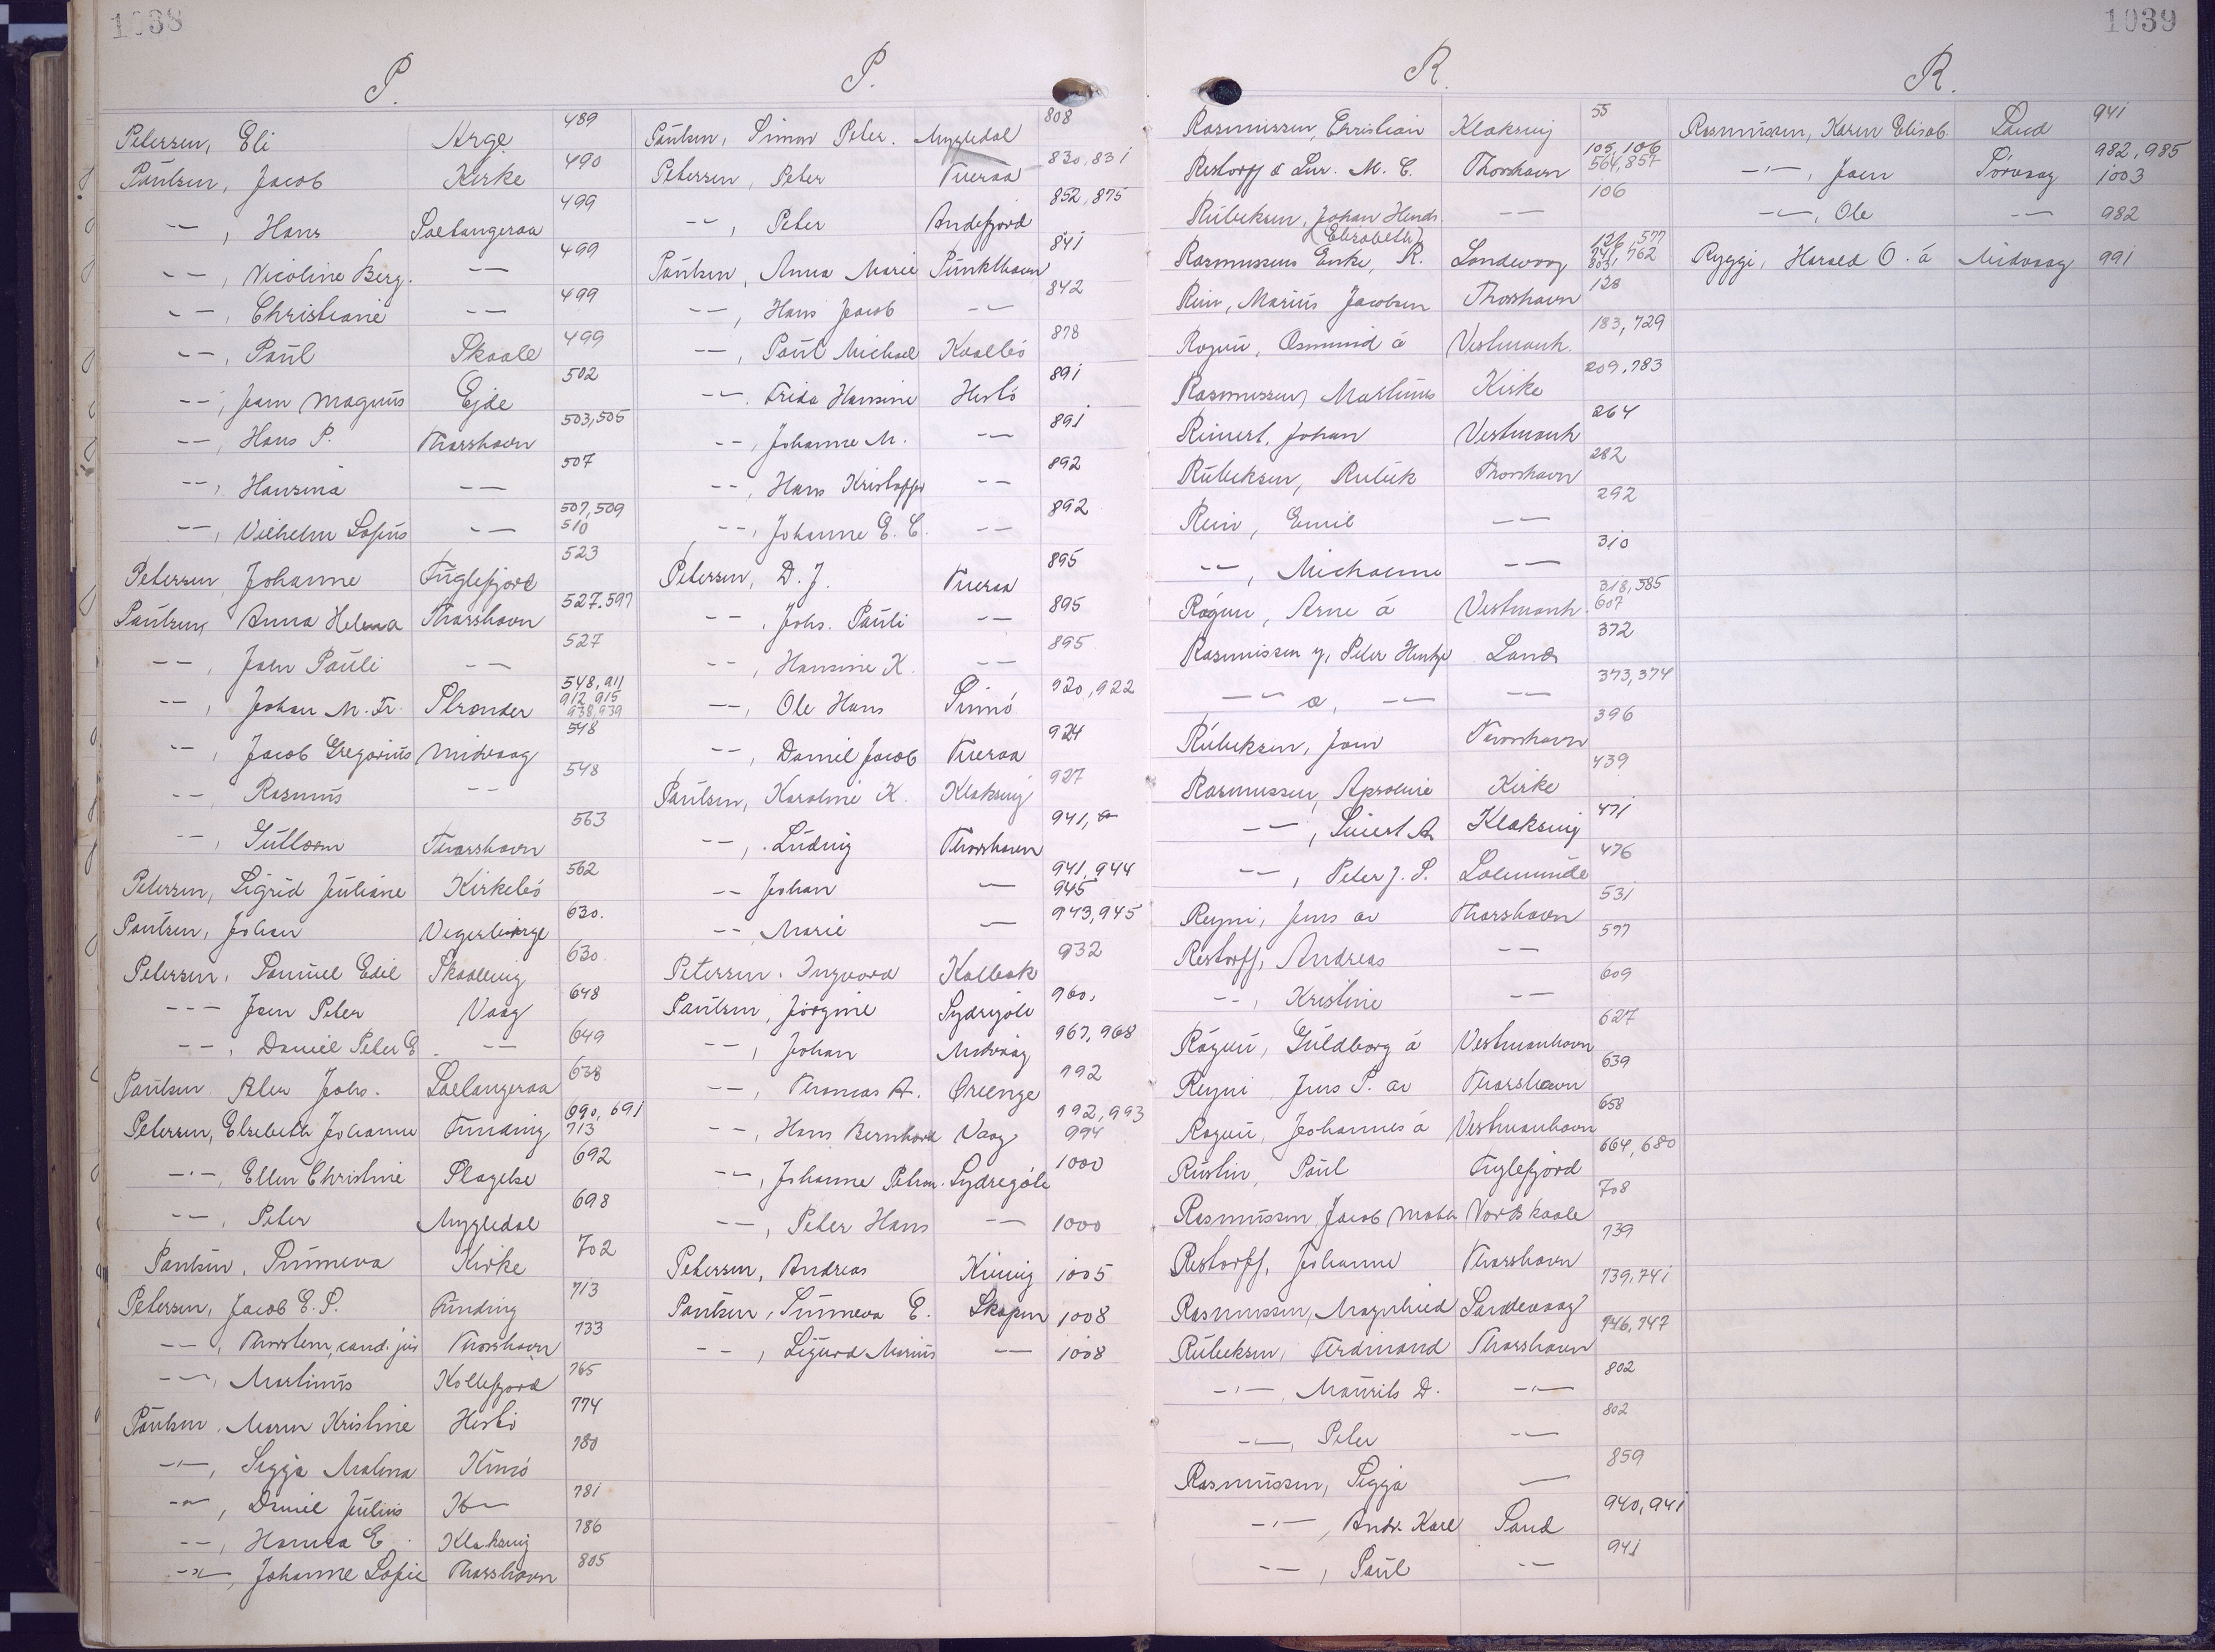 1038
P.
Petersen, Eli Arge 489
Paulsen, Jacob Kirke 490
-"-, Hans Saltangeraa 499
-"-, Nicoline Berg. -"- 499
-"-, Christiane -"- 499
-"-, Paul Skaale 499
-"-, Joen Magnus Ejde 502
-"-, Hans P. Thorshavn 503, 505
-"-, Hansina -"- 507
-"-, Vilhelm Sofus -"- 507, 509 510
Petersen, Johanne Fuglefjord 523
Paulsen, Anna Helena Thorshavn 527. 597
-"-, Joen Pauli -"- 527
-"-, Johan M. Fr. Strender 548, 911 912, 915 938, 939
-"-, Jacob Gregorius Midvaag 548
-"-, Rasmus -"- 548
-"-, Gulloern Thorshavn 563
Petersen, Sigrid Juliane Kirkebö 562
Paulsen, Johan 630.
Petersen, Samuel Edil Skaalevig 630.
-"- Joen Peter Vaag 648
-"-, Daniel Peter E. -"- 649
Paulsen Peter Johs. Saltangeraa 638
Petersen, Elsebeth Johanne Funding 690, 691 713
-"-, Ellen Christine Slagelse 692
-"-, Peter Mygledal 698
Paulsen, Sunneva Kirke 702
Petersen, Jacob E. P. Funding 713
-"-, Thorstein, cand. jur Thorshavn 733
-"-, Martinus Kollefjord 765
Paulsen, Maren Kristine Hestö 774
-"-, Sigga Malena Kunö 780
-"-, Daniel Julius K-"- 781
-"-, Hanna E. Klaksvig 786
-"-, Johanne Sofie Thorshavn 805
P.
Paulsen, Simon Peter. Mygledal 808
Petersen, Peter Tveraa 830, 831
-"-, Peter Andefjord 852, 875
Paulsen, Anna Marie Punkthavn 841
-"-, Hans Jacob -"- 842
-"-, Poul Michael Kvalbö 878
-"-. Frida Hansine Hestö 891
-"-, Johanne M. -"- 891
-"-, Hans Kristoffer -"- 892
-"-, Johanne E. C. -"- 892
Petersen, D. J. Tveraa 895
-"-, Johs. Pauli -"- 895
-"-, Hansine K. -"- 895
-"-, Ole Hans 920, 922
-"-, Daniel Jacob Tveraa 924
Paulsen, Karoline K. Klaksvig 927
-"-, Ludvig Thorshavn 941,
-"- Johan -"- 941, 944 945
-"- Marie -"- 943, 945
Petersen, Ingvard Kalbak 932
Paulsen, Jörgine Sydregöte 960,
-"-, Johan Midvaag 967, 968
-"-, Thomas A. Öreenge 992
-"-, Hans Bernhard Vaag 992, 993 994
-"-, Johanne Petrea. Sydregöte 1000
-"-, Peter Hans -"- 1000
Petersen, Andreas Kvivig 1005
Paulsen, Sunneva E. Skopun 1008
-"-, Sigurd Marius -"- 1008
1039
R.
Rasmussen, Christian Klaksvig 55
Restorff & Sön. M. C. Thorshavn 105, 106 564, 857
Rubeksen, Johan Hendr. -"- 106
(Elisabeth)
Rasmussens Enke, R. Sandevaag 126, 577 741, 762 803,
Rein, Marius Jacobsen Thorshavn 128
Rógvu, Osmund á Vestmanh. 183, 729
Rasmussen, Martinus Kirke 209, 783
Reinert, Johan Vestmanh 264
Rubeksen, Rubek Thorshavn 282
Rein, Emil -"- 292
-"-, Michaeline -"- 310
Rógvu, Arne á Vestmanh. 318, 585 607
Rasmussen y, Peter Hentze Sand 372
-"- a, -"- -"- 373, 374
Rubeksen, Joen Thorshavn 396
Rasmussen, Apoline Kirke 439
-"-, Sivert A Klaksvig 471
-"-, Peter J. S. Lamunde 476
Reyni, Jens av Thorshavn 531
Restorff, Andreas -"- 577
-"-, Kristine -"- 609
Rógvu, Guldborg á Vestmanhavn 627
Reyni Jens P. av Thorshavn 639
Rógvu, Johannes á Vestmanhavn 658
Rustin, Paul Fuglefjord 664, 680
Rasmussen Jacob Norskaale 708
Restorff, Johanne Thorshavn 739
Rasmussen, Magnhild Sandevaag 739, 741
Rubeksen, Ferdinand Thorshavn 746, 747
-"-, Maurits D. -"- 802
-"-, Peter -"- 802
Rasmussen, Sigga -"- 859
-"-, Andr. Karl Sand 940, 941
-"-, Paul -"- 941
R.
Rasmussen, Karen Elisab. Sand 941
-"-, Joen Sörvaag 982, 985 1003
-"-, Ole -"- 982
Ryggi, Harald O. á Midvaag 991